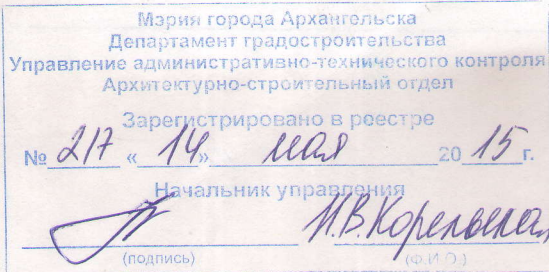 Мэрия города Архангельска
Департамент градостроительства
Управление административно-технического контроля
Архитектурно-строительный отдел
Зарегистрировано в реестре
№ 217 «14» мая 2015 г.
Начальник управления
Н.В. Корельская
(подпись) (Ф.И.О.)